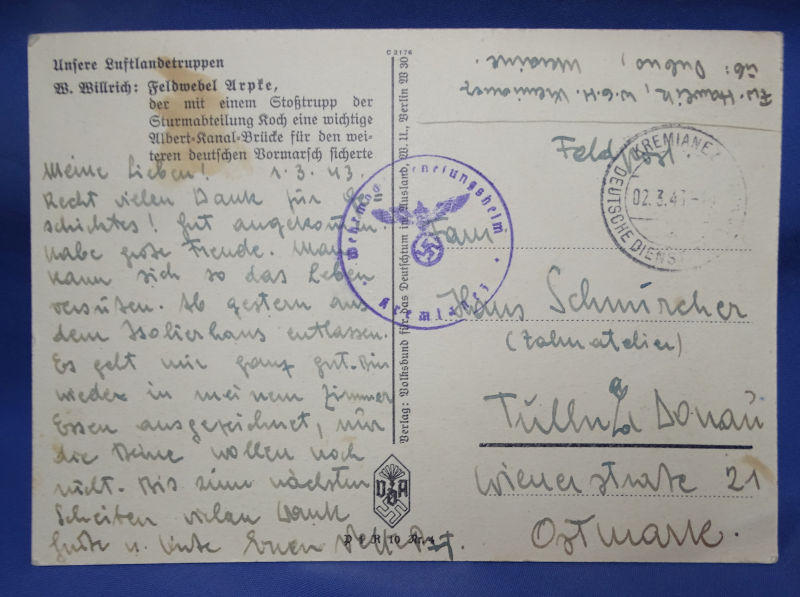 Unsere Luftlandetruppen
W. Willrich: Feldwebel Arpke,
der mit einem Stoßtrupp der
Sturmabteilung Koch eine wichtige
Albert-Kanal-Brücke für den wei-
teren deutschen Vormarsch sicherte
Meine Lieben! 1.3.43.
Recht vielen Dank für Ge-
schichtes! Gut angekommen.
Habe große Freude. Man
kann sich so das Leben
versüßen. Ab gestern aus
dem Isolierhaus entlassen.
Es geht mir ganz gut. Bin
wieder in meinem Zimmer
Essen ausgezeichnet, nur
die Beine wollen noch
nicht. Bis zum nächsten
Schreiben vielen Dank
Grüße u. Küsse Euer
P I R 10 Nr. 4
C 2176
Verlag: Volksbund für das Deutschtum im Ausland, W. U., Berlin W 30
VDA
Kremianez
Fw. W.G.H. Kremianez
üb: Dubno, Ukraine.
Feldpost
KREMIANEZ
02.3.43
DEUTSCHE DIENST
Fam
Hans Schmürcher
(Zahnatelier)
Tulln a/d Donau
Wienerstraße 21
Ostmark.